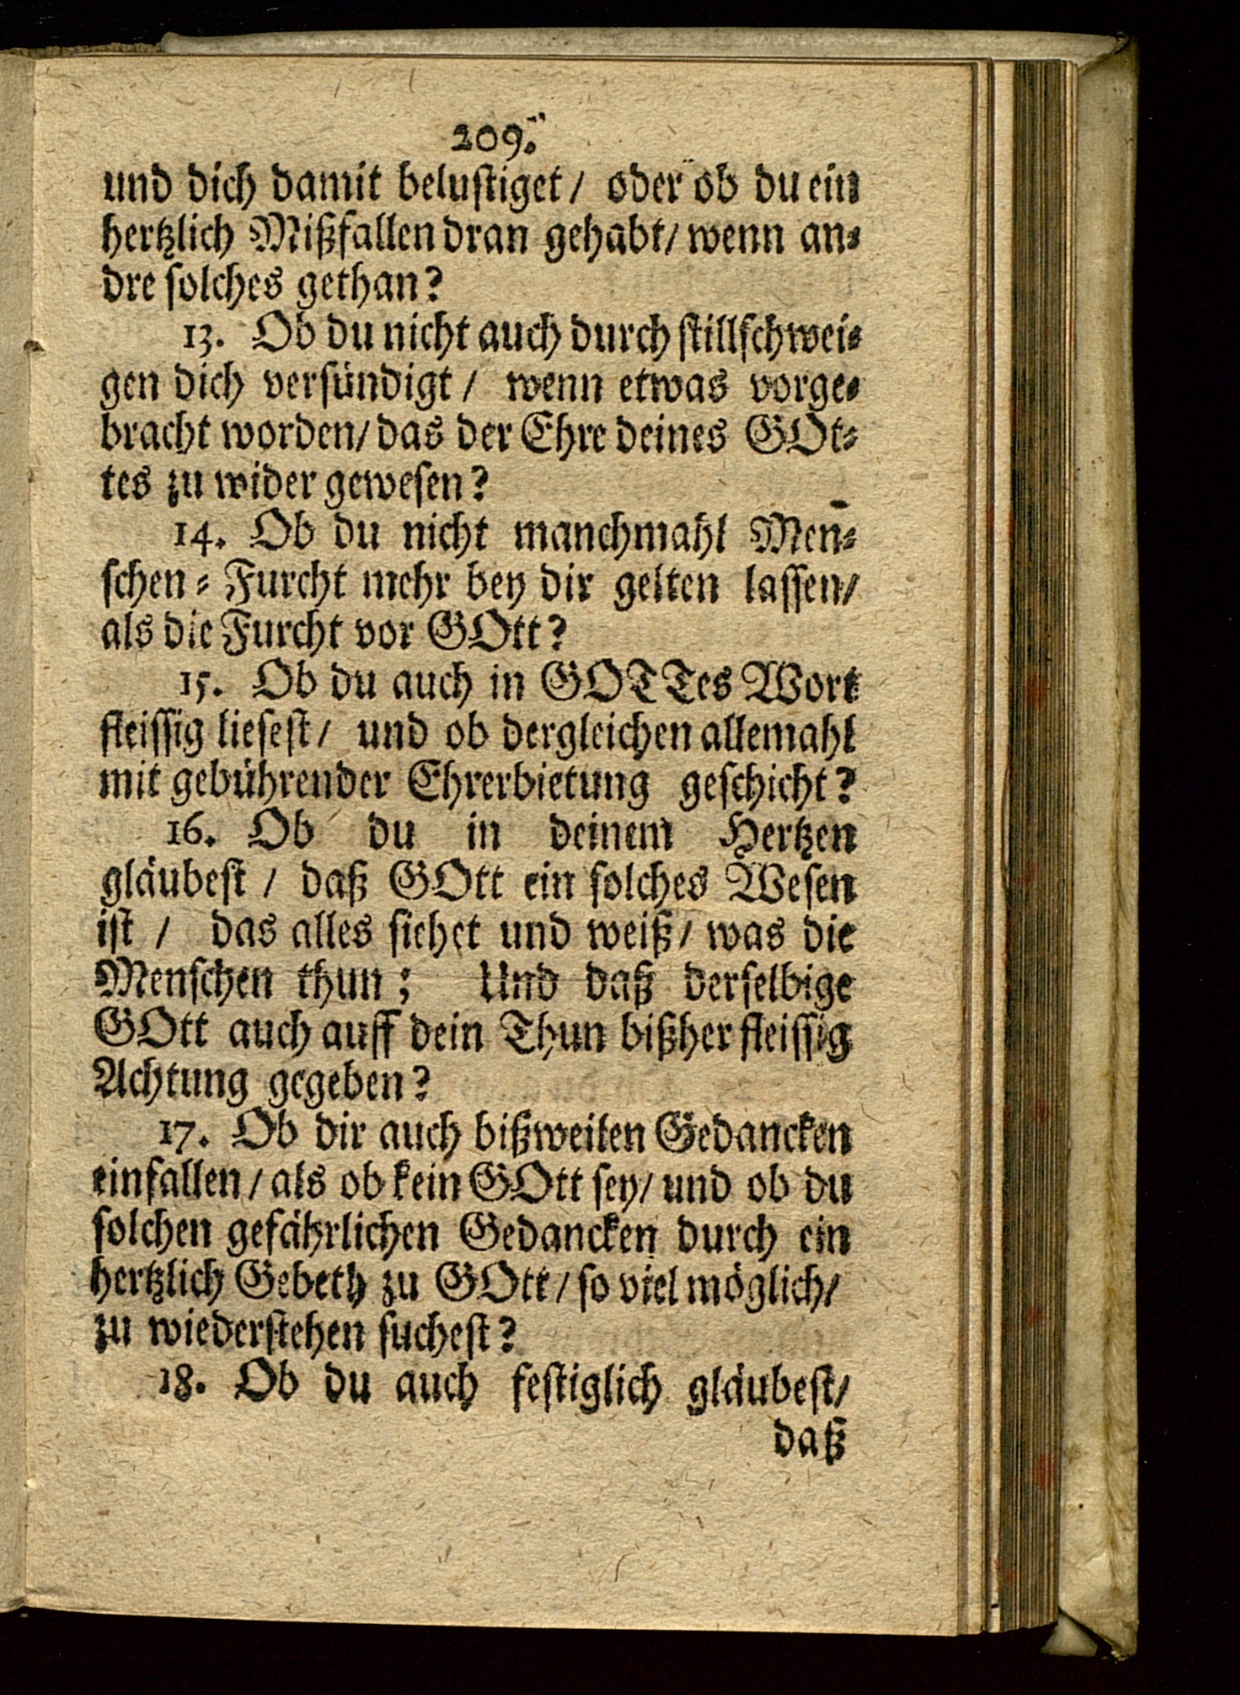 209.
und dich damit belustiget/ oder ob du ein
hertzlich Mißfallen dran gehabt/ wenn an-
dre solches gethan?
13. Ob du nicht auch durch stillschwei-
gen dich versündigt/ wenn etwas vorge-
bracht worden/ das der Ehre deines GOt-
tes zu wider gewesen?
14. Ob du nicht manchmahl Men-
schen-Furcht mehr bey dir gelten lassen/
als die Furcht vor GOtt?
15. Ob du auch in GOTTes Wort
fleissig liesest/ und ob dergleichen allemahl
mit gebührender Ehrerbietung geschicht?
16. Ob du in deinem Hertzen
gläubest/ daß GOtt ein solches Wesen
ist/ das alles siehet und weiß/ was die
Menschen thun; Und daß derselbige
GOtt auch auff dein Thun bißher fleissig
Achtung gegeben?
17. Ob dir auch bißweilen Gedancken
einfallen/ als ob kein GOtt sey/ und ob du
solchen gefährlichen Gedancken durch ein
hertzlich Gebeth zu GOtt/ so viel möglich/
zu wiederstehen suchest?
18. Ob du auch festiglich gläubest/
daß